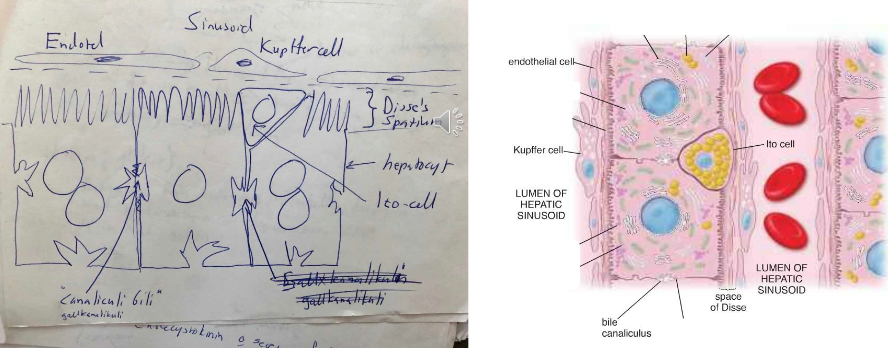 Sinusoid
Endotel
Kupffercell
Disse's
Spatium
hepatocyt
Ito-cell
"Canaliculi bili"
gallkanalikuli
gallkanalikuli
endothelial cell
Kupffer cell
LUMEN OF
HEPATIC
SINUSOID
Ito cell
LUMEN OF
HEPATIC
SINUSOID
space
of Disse
bile
canaliculus